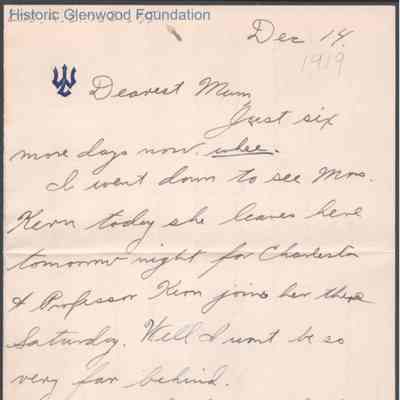 Historic Glenwood Foundation
Dec 14.
1919
Dearest Mum
Just six
more days now. whee.
I went down to see Mrs.
Kern today she leaves here
tomorrow night for Charleston
& Professor Kern joins her there
Saturday. Well I wont be so
very far behind.